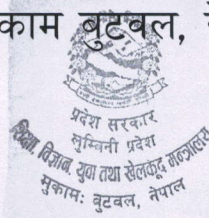 काम बुटवल,
प्रदेश सरकार
लुम्बिनी प्रदेश
शिक्षा, विज्ञान, युवा तथा खेलकूद मन्त्रालय
मुकामः बुटवल, नेपाल